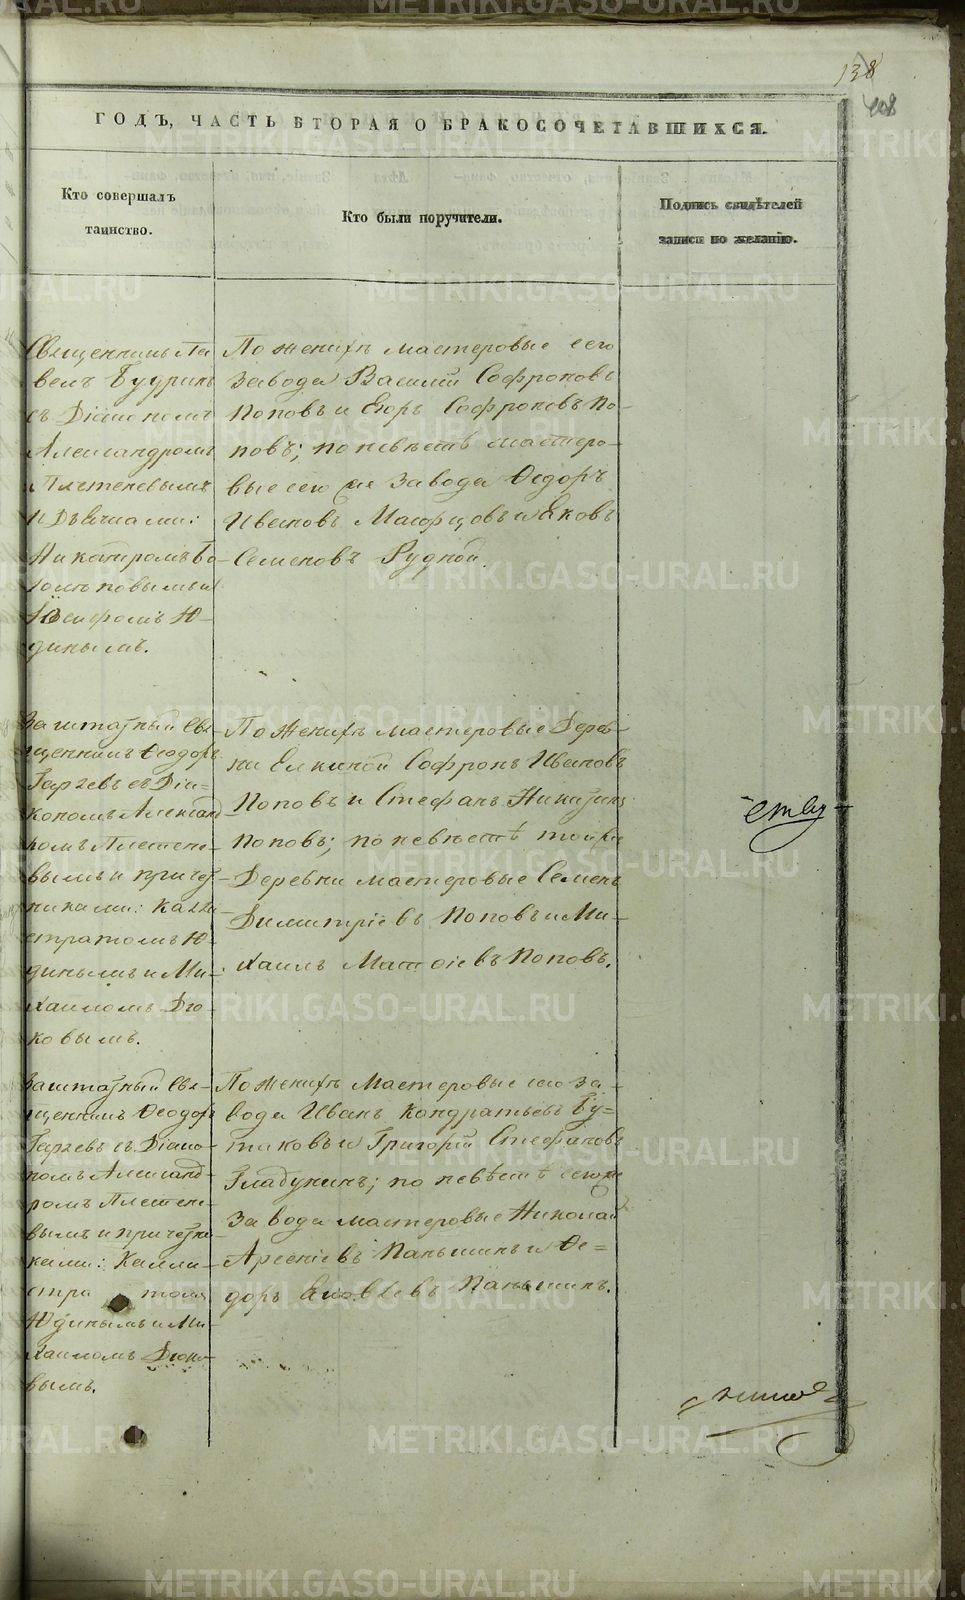 138
ГОДЪ, ЧАСТЬ ВТОРАЯ О БРАКОСОЧЕТАВШИХСЯ.
Кто совершалъ
таинство.
Кто были поручители.
Подпись свидѣтелей
записи по желанію.
Священникъ Па
велъ Будринъ
съ Діакономъ
Александромъ
Плетеневымъ
и Дьячками:
Никандромъ Бо
гомъ и
Ю
динымъ.
По женихѣ мастеровые сего
завода Василій Софроновъ
Поповъ и Егоръ Софроновъ По-
повъ; по невѣстѣ мастеро-
вые сего же завода Ѳедоръ
Ивановъ и Яковъ
Семеновъ Рудной.
Заштатный Свя-
щенникъ Ѳеодоръ
Гаряевъ съ Діа-
кономъ Александ
ромъ Плетене-
вымъ и причет-
никами: Калли
стратомъ Ю-
динымъ и Ми-
хаиломъ Дю-
ковымъ.
По женихѣ мастеровые Дерев-
ни Елкиной Софронъ Ивановъ
Поповъ и Стефанъ Никитинъ
Поповъ; по невѣстѣ той же
Деревни мастеровые Семенъ
Димитріевъ Поповъ и Ми-
хаилъ Матѳіевъ Поповъ.
ству
Заштатный Свя-
щенникъ Ѳеодоръ
Гаряевъ съ Діако-
номъ Александ-
ромъ Плетене-
вымъ и причетни-
ками: Калли-
стратомъ
Юдинымъ и Ми-
хаиломъ Дюко-
вымъ.
По женихѣ Мастеровые сего за-
вода Иванъ Кондратьевъ Бу-
таковъ и Григорій Стефановъ
Гладунинъ; по невѣстѣ сего же
завода мастеровые Николай
Арсеніевъ Паньшинъ и Ѳе-
доръ Яковлевъ Паньшинъ.
METRIKI.GASO-URAL.RU